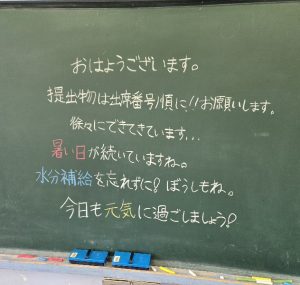 おはようございます。
提出物は出席番号順に!!お願いします。
徐々にできてきています...
暑い日が続いていますね。
水分補給を忘れずに!ぼうしもね。
今日も元気に過ごしましょう!